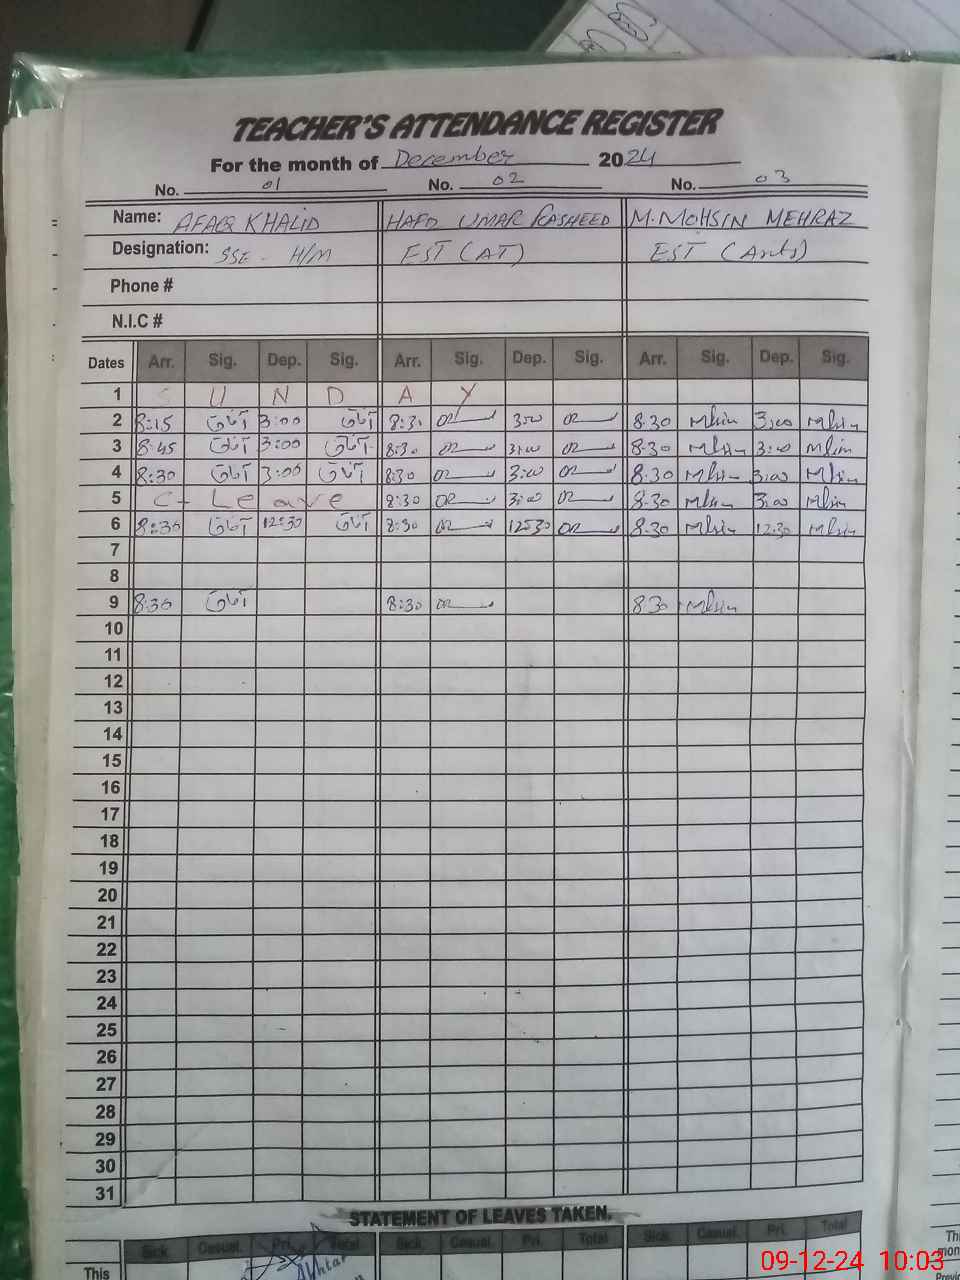 TEACHER'S ATTENDANCE REGISTER
For the month of December 2024
No. 01 No. 02 No. 03
Name: AFAQ KHALID HAFD UMAR RASHEED M. MOHSIN MEHRAZ
Designation: SSE - H/M EST (AT) EST (Arts)
Phone #
N.I.C #
Dates Arr. Sig. Dep. Sig. Arr. Sig. Dep. Sig. Arr. Sig. Dep. Sig.
1 S U N D A Y
2 8:15 آفاق 3:00 آفاق 8:30 3:00 8:30 Mhsin 3:00 Mhsin
3 8:45 آفاق 3:00 آفاق 8:30 3:00 8:30 Mhsin 3:00 Mhsin
4 8:30 آفاق 3:00 آفاق 8:30 3:00 8:30 Mhsin 3:00 Mhsin
5 C- Leave 8:30 3:00 8:30 Mhsin 3:00 Mhsin
6 8:30 آفاق 12:30 آفاق 8:30 1230 8:30 Mhsin 12:30 Mhsin
7
8
9 8:30 آفاق 8:30 8:30 Mhsin
10
11
12
13
14
15
16
17
18
19
20
21
22
23
24
25
26
27
28
29
30
31
STATEMENT OF LEAVES TAKEN.
Sick. Casual. Pri. Total Sick. Casual. Pri. Total Sick. Casual. Pri. Total
This
Akhtar
09-12-24 10:03